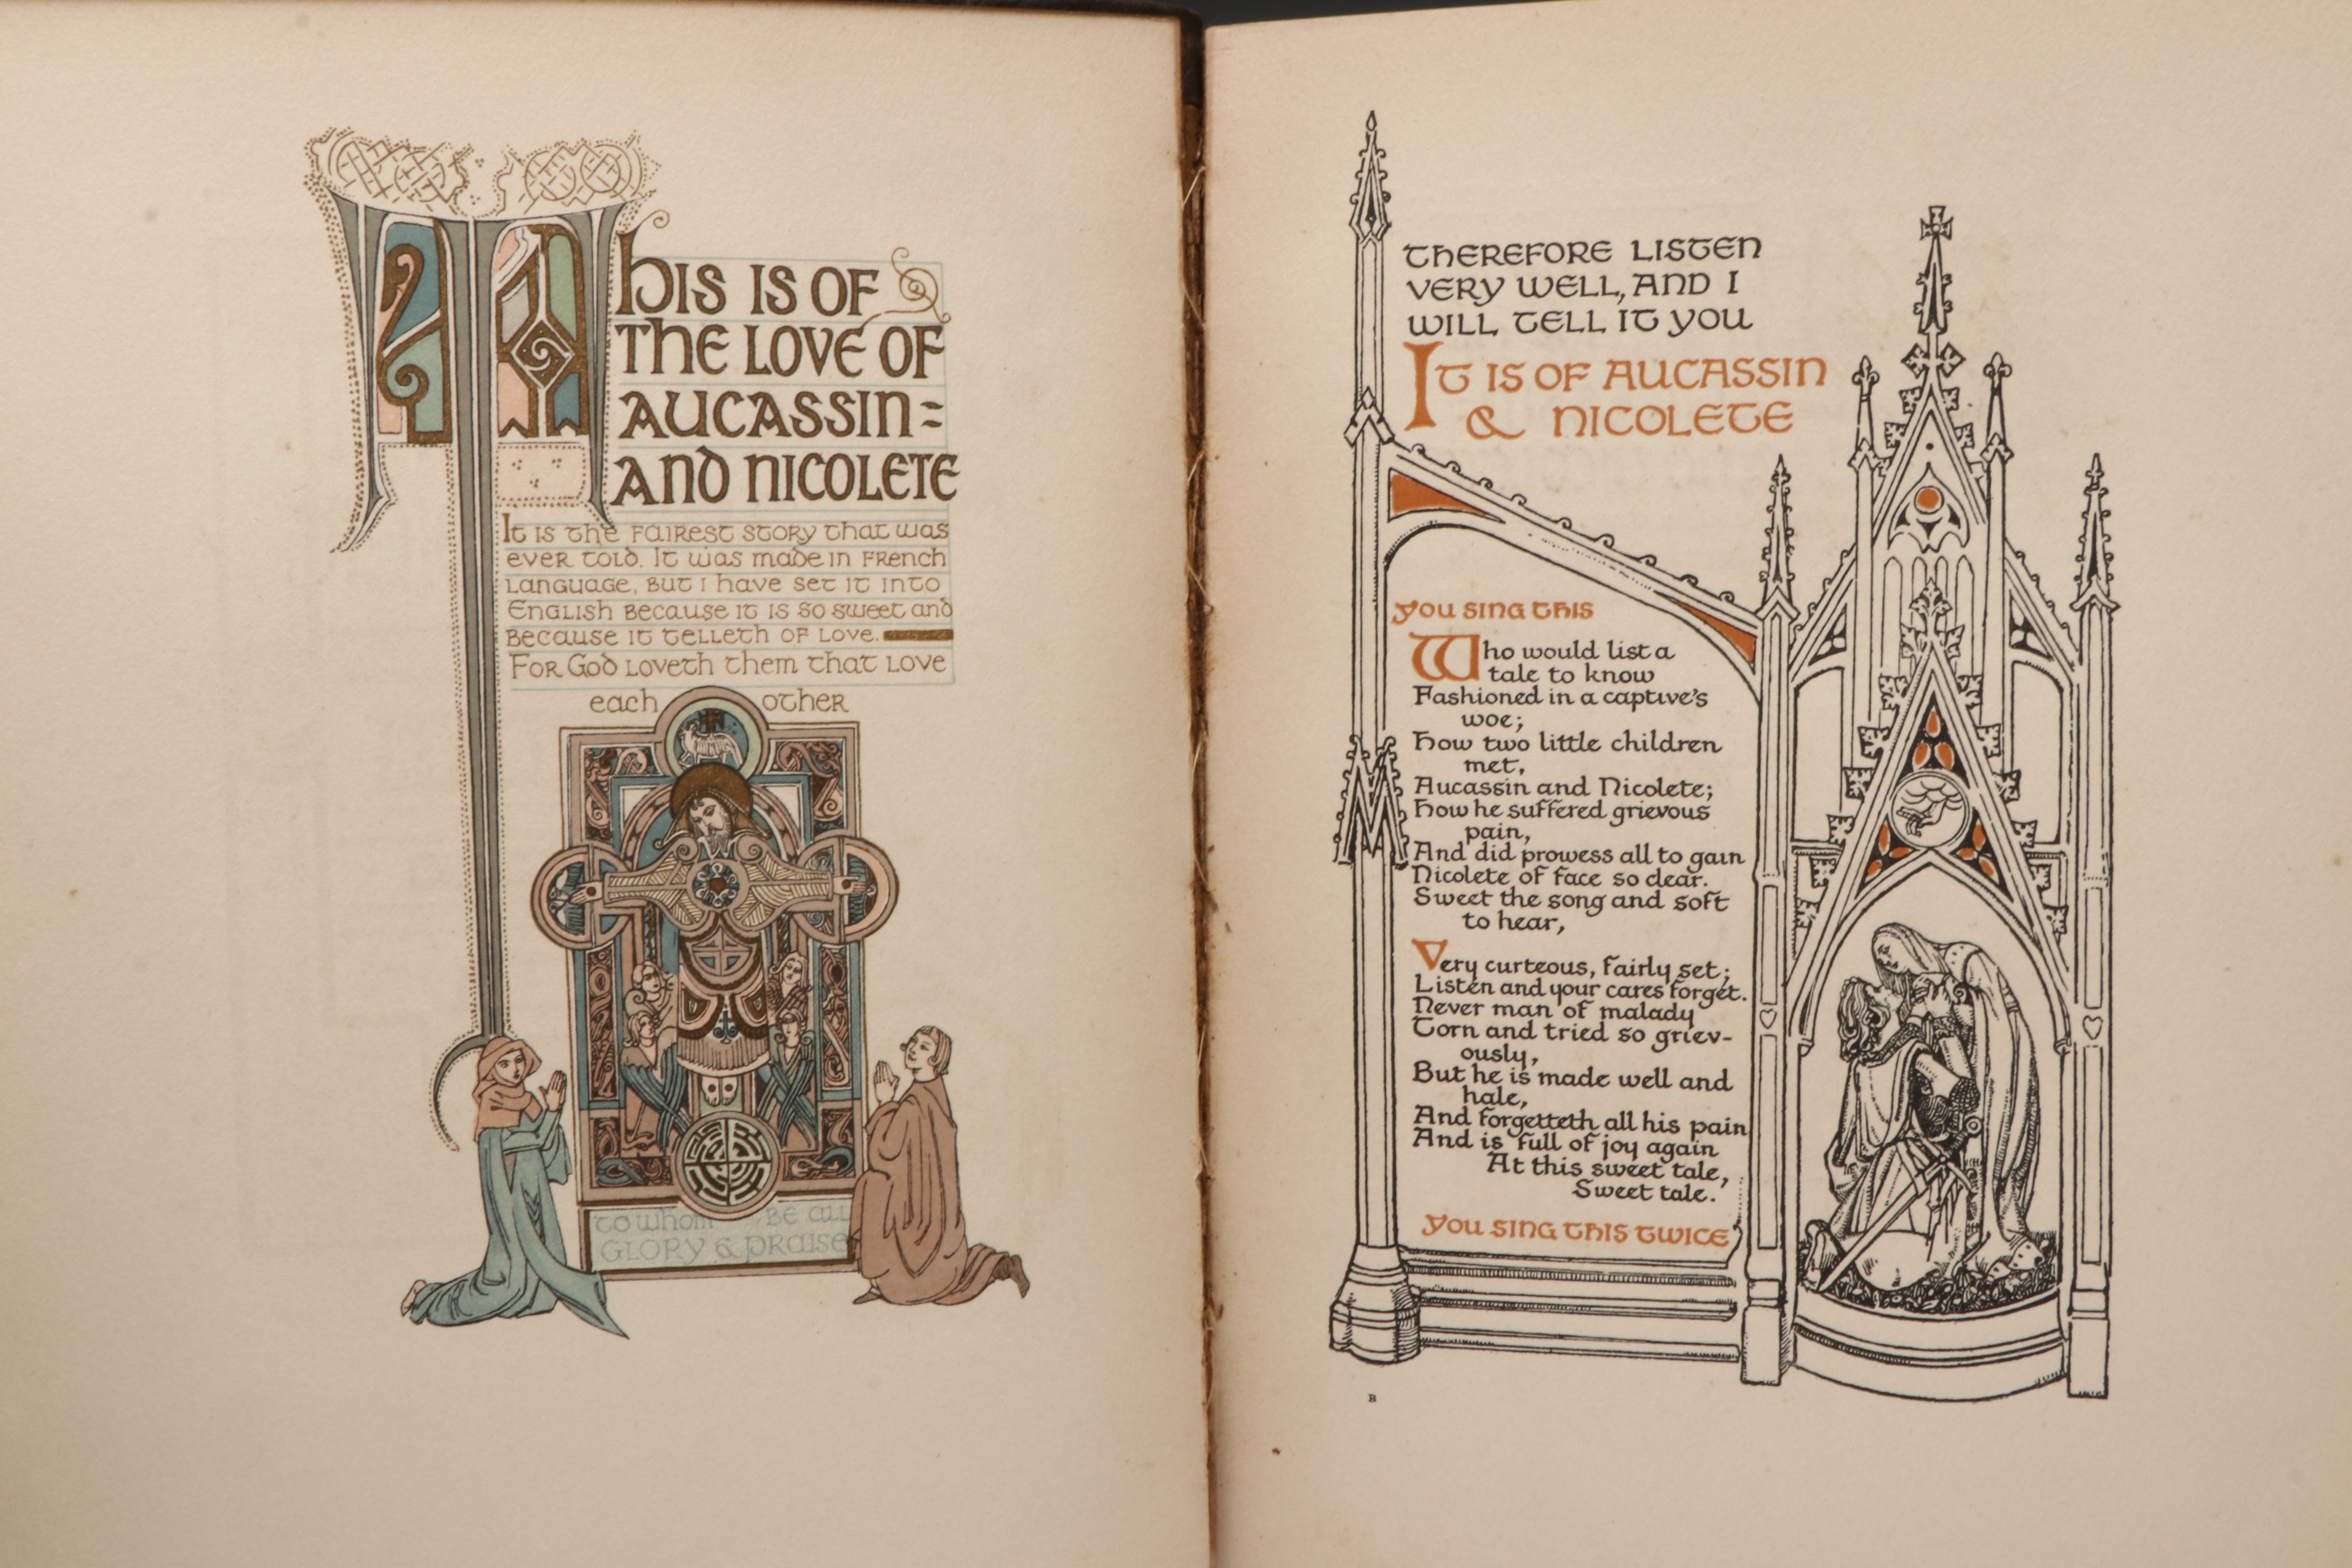 This is of
the love of
Aucassin =
and Nicolete
It is the fairest story that was
ever told. It was made in French
language, but I have set it into
English because it is so sweet and
because it telleth of love.
For God loveth them that love
each other
to whom be all
glory & praise
Therefore listen
very well, and I
will tell it you
It is of Aucassin
& Nicolete
You sing this
Who would list a
tale to know
Fashioned in a captive's
woe;
How two little children
met,
Aucassin and Nicolete;
How he suffered grievous
pain,
And did prowess all to gain
Nicolete of face so clear.
Sweet the song and soft
to hear,
Very curteous, fairly set;
Listen and your cares forget.
Never man of malady
Torn and tried so griev-
ously,
But he is made well and
hale,
And forgetteth all his pain
And is full of joy again
At this sweet tale,
Sweet tale.
You sing this twice
B